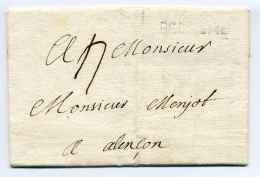 A Monsieur
Monsieur Monjot
a alençon